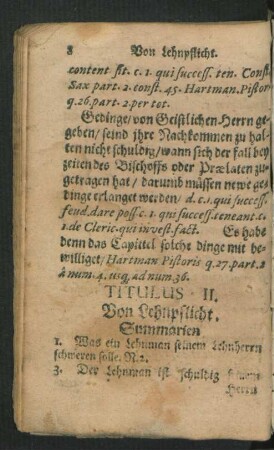 8 Von Lehnpflicht.
content sit. c. 1. qui success. ten. Const.
Sax part. 2. const. 45. Hartman. Pistoris
q. 26. part. 2. per tot.
Gedinge/ von Geistlichen Herrn ge-
geben/ seind jhre Nachkommen zu hal-
ten nicht schuldig/ wann sich der fall bey
zeiten des Bischoffs oder Prælaten zu-
getragen hat/ darumb müssen newe ge-
dinge erlanget werden/ d. c. 1. qui success.
feud. dare poss. c. 1. qui success. teneant. c.
1. de Cleric. qui invest. fact. Es habe
denn das Capittel solche dinge mit be-
williget/ Hartman Pistoris q. 27. part. 2
à num. 4. usq; ad num. 36.
TITULUS II.
Von Lehnpflicht.
Summarien
1. Was ein Lehnman seinem Lehnherrn
schweren solle. N. 2.
3. Der Lehnman ist schuldig seinem
Herrn